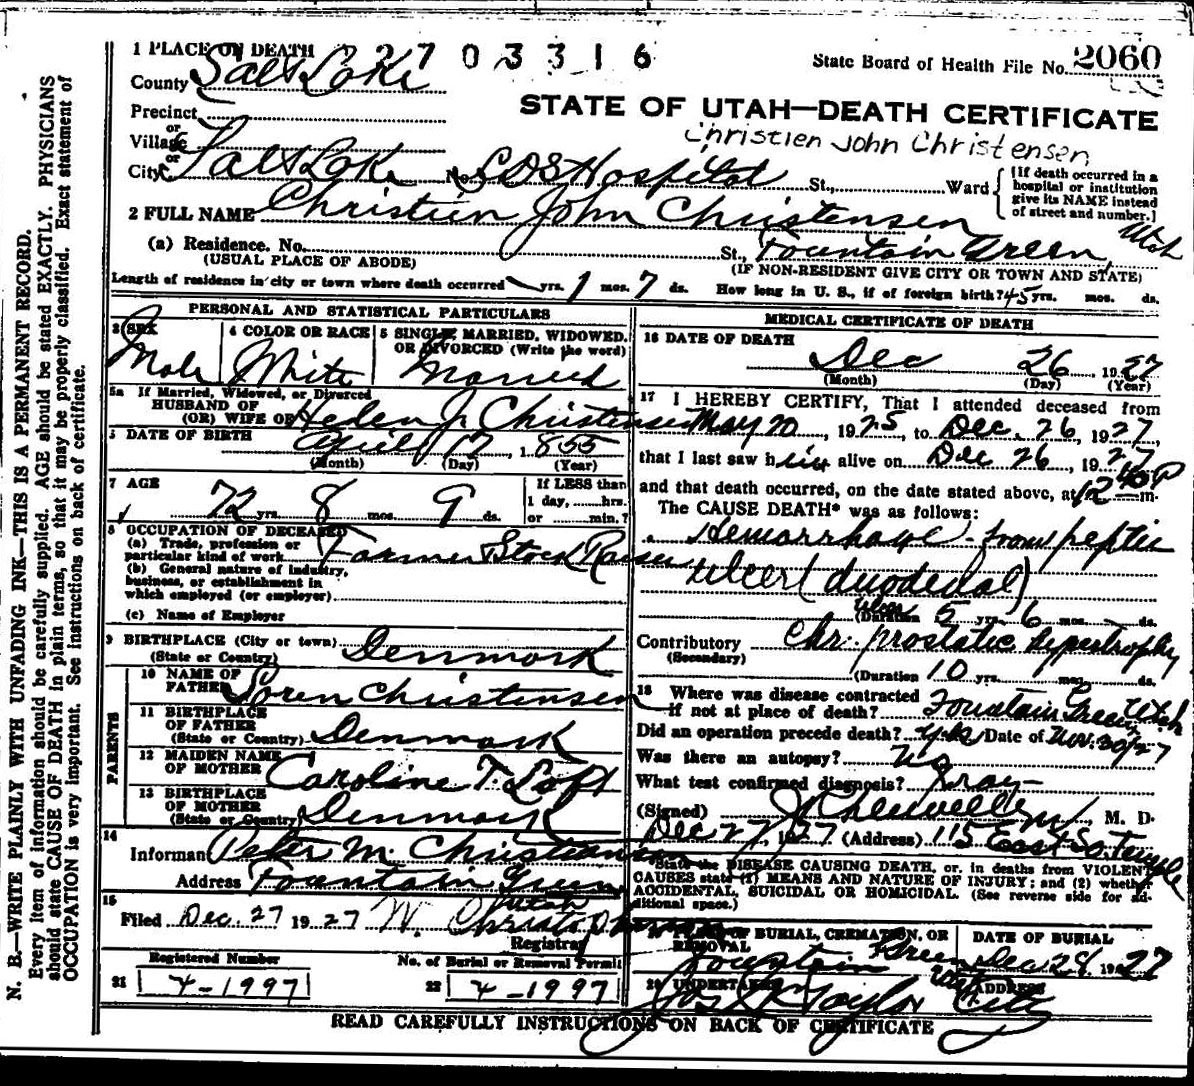 1 PLACE OF DEATH 2703316
State Board of Health File No. 2060
County Salt Lake
STATE OF UTAH—DEATH CERTIFICATE
Precinct
Christien John Christensen
or
Village
or
City Salt Lake No. LDS Hospital St., Ward
[If death occurred in a hospital or institution give its NAME instead of street and number.]
2 FULL NAME Christien John Christensen
(a) Residence. No. St., Fountain Green, Utah
(USUAL PLACE OF ABODE) (IF NON-RESIDENT GIVE CITY OR TOWN AND STATE)
Length of residence in city or town where death occurred yrs. 1 mos. 7 ds. How long in U. S., if of foreign birth? 45 yrs. mos. ds.
PERSONAL AND STATISTICAL PARTICULARS
3 SEX 4 COLOR OR RACE 5 SINGLE, MARRIED, WIDOWED.
OR DIVORCED (Write the word)
Male White Married
5a If Married, Widowed, or Divorced
HUSBAND OF
(OR) WIFE OF Helen J. Christensen
DATE OF BIRTH April 17, 1855
(Month) (Day) (Year)
7 AGE 72 yrs. 8 mos. 9 ds.
If LESS than
1 day, hrs.
or min.?
8 OCCUPATION OF DECEASED
(a) Trade, profession or
particular kind of work Farmer Stock Raiser
(b) General nature of industry,
business, or establishment in
which employed (or employer)
(c) Name of Employer
9 BIRTHPLACE (City or town)
(State or Country) Denmark
PARENTS
10 NAME OF
FATHER Soren Christensen
11 BIRTHPLACE
OF FATHER
(State or Country) Denmark
12 MAIDEN NAME
OF MOTHER Caroline T. Loft
13 BIRTHPLACE
OF MOTHER
(State or Country) Denmark
14
Informant Peter M. Christiansen
Address Fountain Green
Utah
15
Filed Dec. 27 1927 W. Christo
Registrar
Registered Number No. of Burial or Removal Permit
21 4-1997 22 4-1997
MEDICAL CERTIFICATE OF DEATH
16 DATE OF DEATH
Dec 26 1927
(Month) (Day) (Year)
17 I HEREBY CERTIFY, That I attended deceased from
May 20, 1925, to Dec. 26, 1927,
that I last saw him alive on Dec 26, 1927
and that death occurred, on the date stated above, at 12 40 P m.
The CAUSE DEATH* was as follows:
Hemorrhage - from peptic
ulcer (duodenal)
ulcer
(Duration 5 yrs. 6 mos. ds.
Contributory Chr. prostatic hypertrophy
(Secondary)
(Duration 10 yrs. mos. ds.
18 Where was disease contracted
if not at place of death? Fountain Green Utah
Did an operation precede death? Date of Nov. 30/27
Was there an autopsy? No
What test confirmed diagnosis? Xray
(Signed) M. D.
Dec 27, 1927 (Address) 115 East So. Temple
*State the DISEASE CAUSING DEATH, or, in deaths from VIOLENT
CAUSES state (1) MEANS AND NATURE OF INJURY; and (2) whether
ACCIDENTAL, SUICIDAL OR HOMICIDAL. (See reverse side for ad-
ditional space.)
OF BURIAL, CREMATION, OR
REMOVAL
DATE OF BURIAL
Fountain Green Utah Dec 28, 1927
20 UNDERTAKER ADDRESS
Jos. Taylor City
READ CAREFULLY INSTRUCTIONS ON BACK OF CERTIFICATE
N. B.—WRITE PLAINLY WITH UNFADING INK—THIS IS A PERMANENT RECORD.
Every item of information should be carefully supplied. AGE should be stated EXACTLY. PHYSICIANS
should state CAUSE OF DEATH in plain terms, so that it may be properly classified. Exact statement of
OCCUPATION is very important. See instructions on back of certificate.